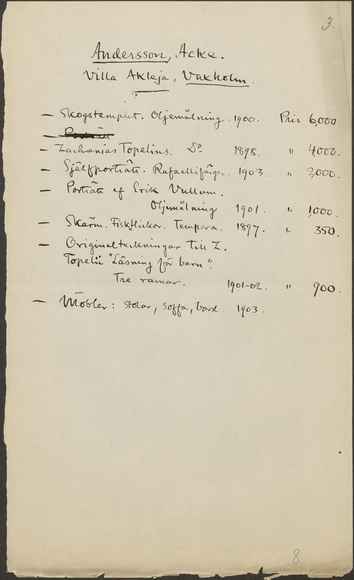 3.
Andersson, Acke.
Villa Akleja, Vaxholm.
— Skogstemplet. Oljemålning. 1900. Pris 6,000
—
— Zacharias Topelius. Do 1898. " 4000.
— Självporträtt. Rafaellifärg. 1903 " 2,000.
— Porträtt af Erik Vullum.
Oljemålning 1901. " 1,000.
— Skärm. Fiskflickor. Tempera. 1897. " 350.
— Originalteckningar till Z.
Topelii "Läsning för barn".
Tre ramar. 1901-02. " 900.
— Möbler: stolar, soffa, bord 1903.
8